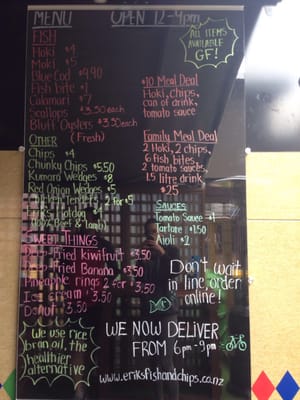 MENU OPEN 12-9pm
ALL ITEMS
AVAILABLE
GF!
FISH
Hoki $4
Moki $5
Blue Cod $9.90
Fish bite $1
Calamari $7
Scallops $3.50 each
Bluff Oysters $3.50 each
(Fresh)
OTHER
Chips $4
Chunky Chips $5.50
Kumara Wedges $8
Red Onion Wedges $5
Chicken Tenders 2 for $5
Hotdog
Beef & Lamb
SWEET THINGS
Deep Fried kiwifruit $3.50
Deep Fried Banana $3.50
Pineapple rings 2 for $3.50
Ice cream $3.50
Donut $3.50
We use rice
bran oil, the
healthier
alternative
$10 Meal Deal
Hoki, chips,
can of drink,
tomato sauce
Family Meal Deal
2 Hoki, 2 chips,
6 fish bites,
2 tomato sauces,
1.5 litre drink
$25
SAUCES
Tomato Sauce $1
Tartare $1.50
Aioli $2
Don't wait
in line, order
online!
WE NOW DELIVER
FROM 6pm-9pm
www.eriksfishandchips.co.nz